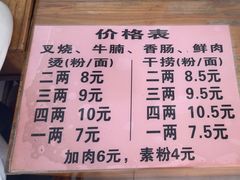 价格表
叉烧、牛腩、香肠、鲜肉
烫(粉/面) 干捞(粉/面)
二两 8元 二两 8.5元
三两 9元 三两 9.5元
四两 10元 四两 10.5元
一两 7元 一两 7.5元
加肉6元，素粉4元